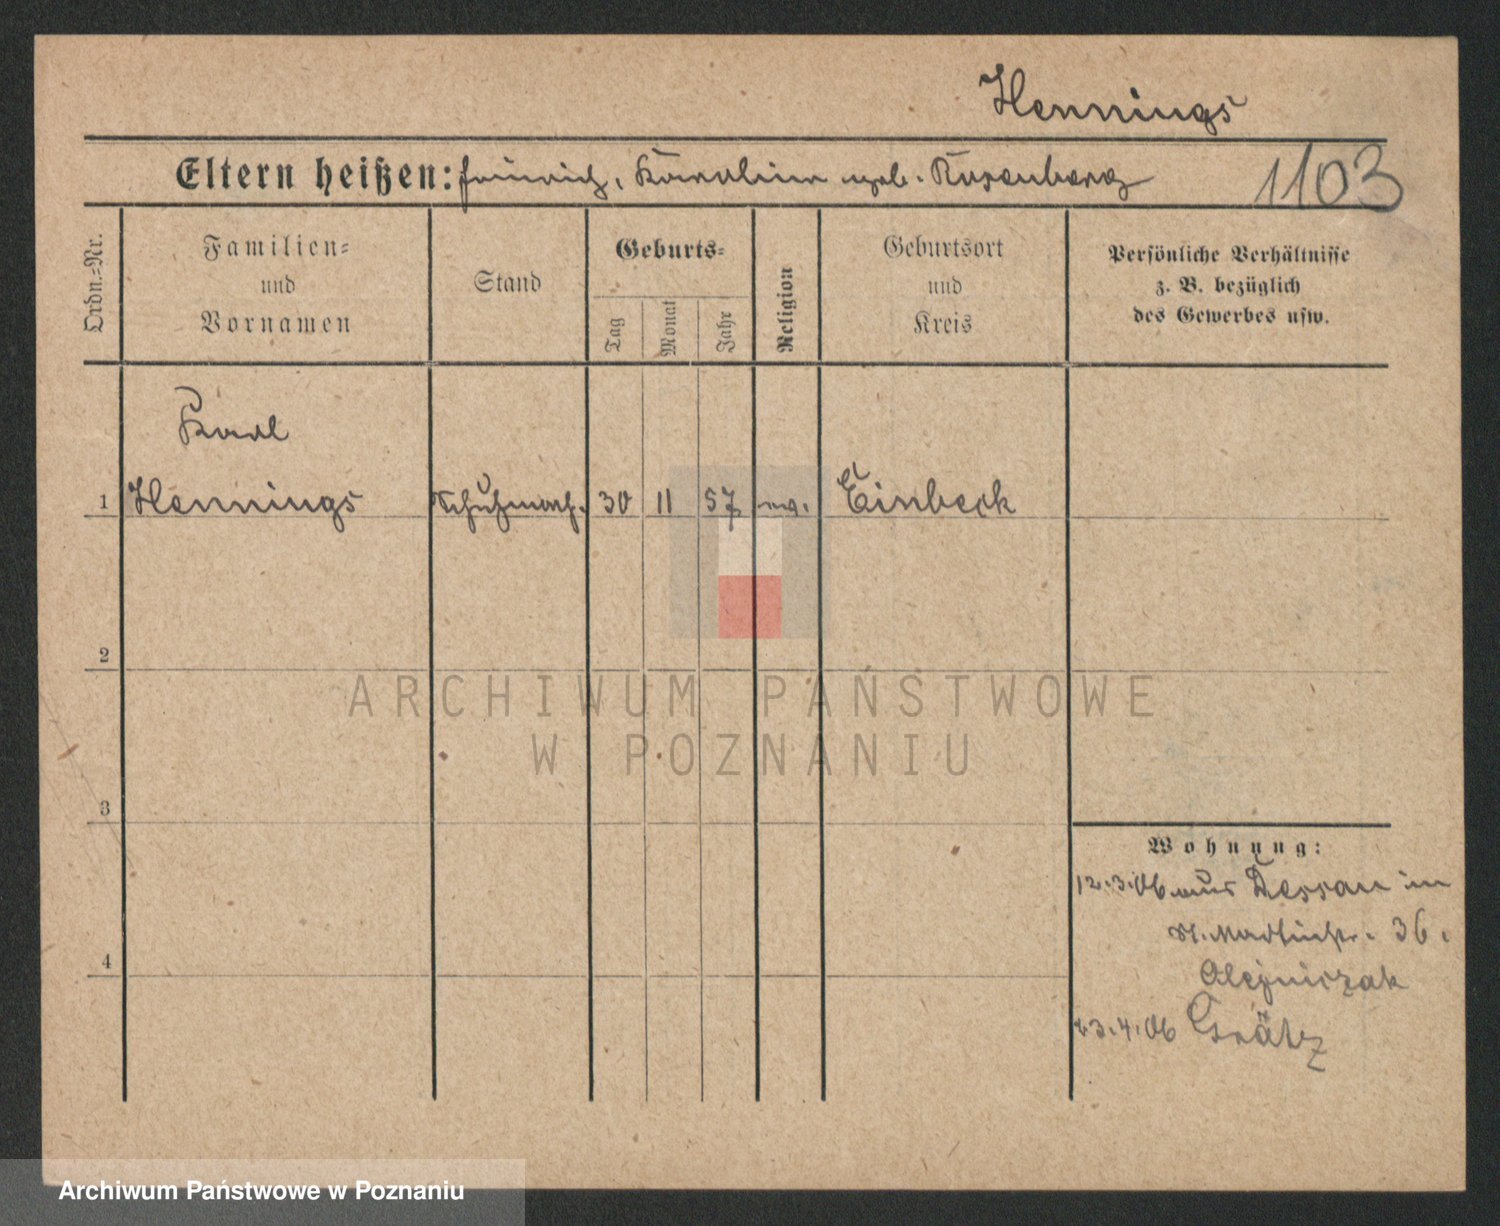 Hennings
Eltern heißen: Heinrich, Karoline geb. Rosenberg 1103
Ordn.-Nr.
Familien-
und
Vornamen
Stand
Geburts-
Tag
Monat
Jahr
Religion
Geburtsort
und
Kreis
Persönliche Verhältnisse
z. B. bezüglich
des Gewerbes usw.
Karl
1 Hennings Schuhmach. 30 11 57 ev. Einbeck
2
3
4
Wohnung:
12.3.06 aus Dessau in
St. Martinstr. 36.
Olejniczak
23.4.06 Grätz
ARCHIWUM PAŃSTWOWE
W POZNANIU
Archiwum Państwowe w Poznaniu